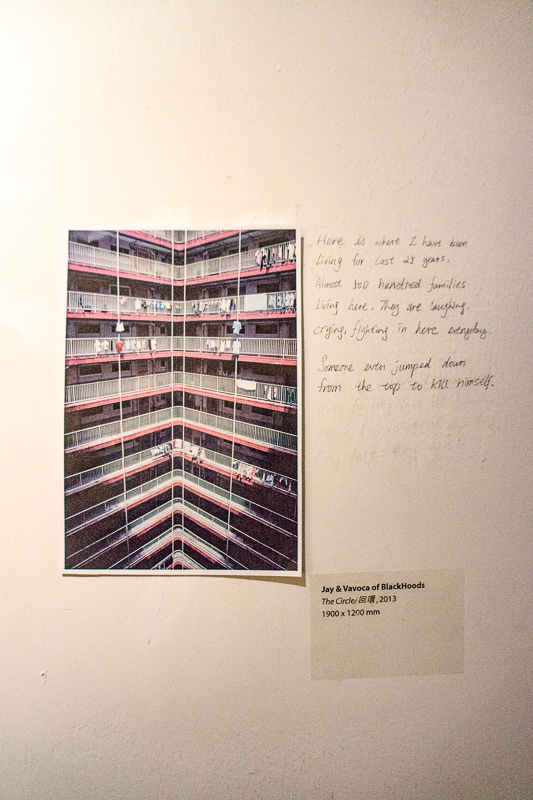 Here is where I have been
living for last 23 years.
Almost 300 hundred families
living here. They are laughing.
crying, fighting in here everyday.
Someone even jumped down
from the top to kill himself.
Jay & Vavoca of BlackHoods
The Circle/ 回環, 2013
1900 x 1200 mm